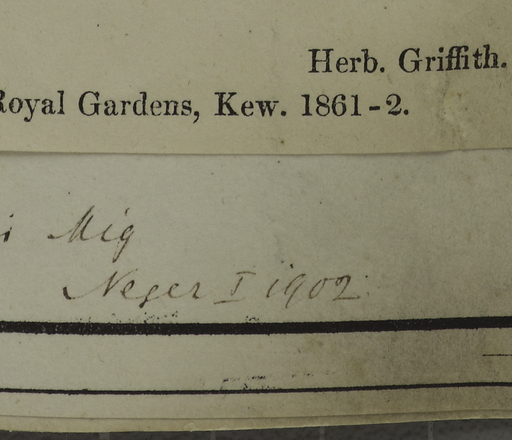 Herb. Griffith.
Royal Gardens, Kew. 1861-2.
i Miq
Neger I 1902